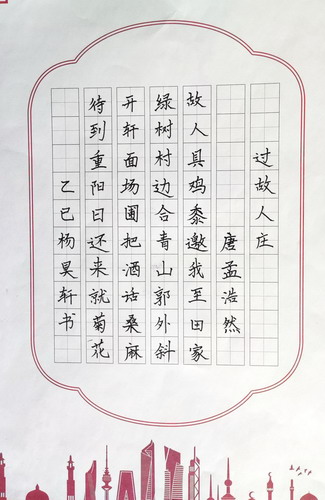 过故人庄
唐孟浩然
故人具鸡黍邀我至田家
绿树村边合青山郭外斜
开轩面场圃把酒话桑麻
待到重阳日还来就菊花
乙巳杨昊轩书